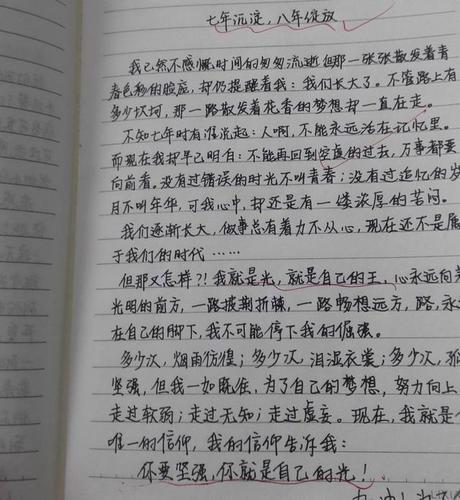 七年沉淀,八年绽放
我已然不感慨时间的匆匆流逝但那一张张散发着青
春色彩的脸庞,却仍提醒着我:我们长大了。不管路上有
多少坎坷,那一路散发着花香的梦想却一直在走。
不知七年时有谁说起:人啊,不能永远活在记忆里。
而现在我却早已明白:不能再回到空虚的过去,万事都要
向前看。没有过错误的时光不叫青春;没有过追忆的岁
月不叫年华,可我心中,却还是有一缕浓厚的苦闷。
我们逐渐长大,做事总有着力不从心,现在还不是属
于我们的时代……
但那又怎样?!我就是光,就是自己的王,心永远向着
光明的前方,一路披荆折棘,一路畅想远方,路,永远
在自己的脚下,我不可能停下我的倔强。
多少次,烟雨彷徨;多少次,泪湿衣裳;多少次,
坚强,但我一如既往,为了自己的梦想,努力向上
走过软弱;走过无知;走过虚妄。现在,我就是
唯一的信仰,我的信仰告诉我:
你要坚强,你就是自己的光!